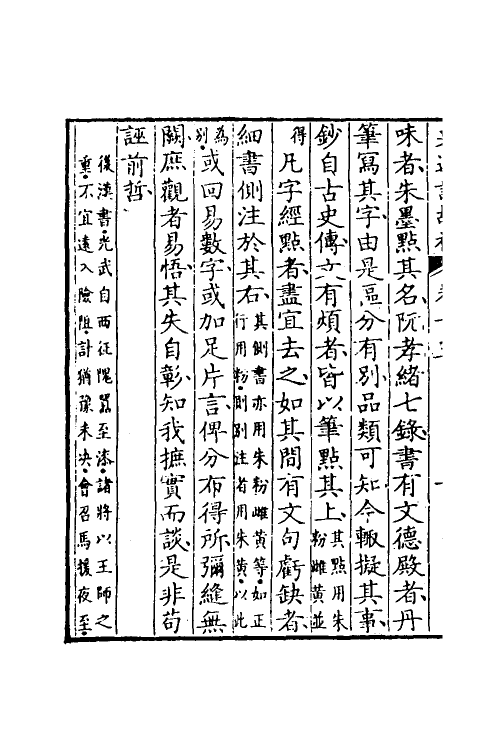 味者朱墨點其名阮孝緒七錄書有文德殿者丹
筆寫其字由是區分有別品類可知今輙擬其事
鈔自古史傳文有煩者皆以筆點其上其點用朱粉雌黄並
得凡字經點者盡宜去之如其間有文句虧缺者
細書側注於其右其側書亦用朱粉雌黄等如正行用粉則別注者用朱黄以此
為別或回易數字或加足片言俾分布得所彌縫無
闕庶觀者易悟其失自彰知我摭實而談是非苟
誣前哲
後漢書光武自西征隗囂至漆諸將以王師之
重不宜遠入險阻計猶豫未決會召馬援夜至